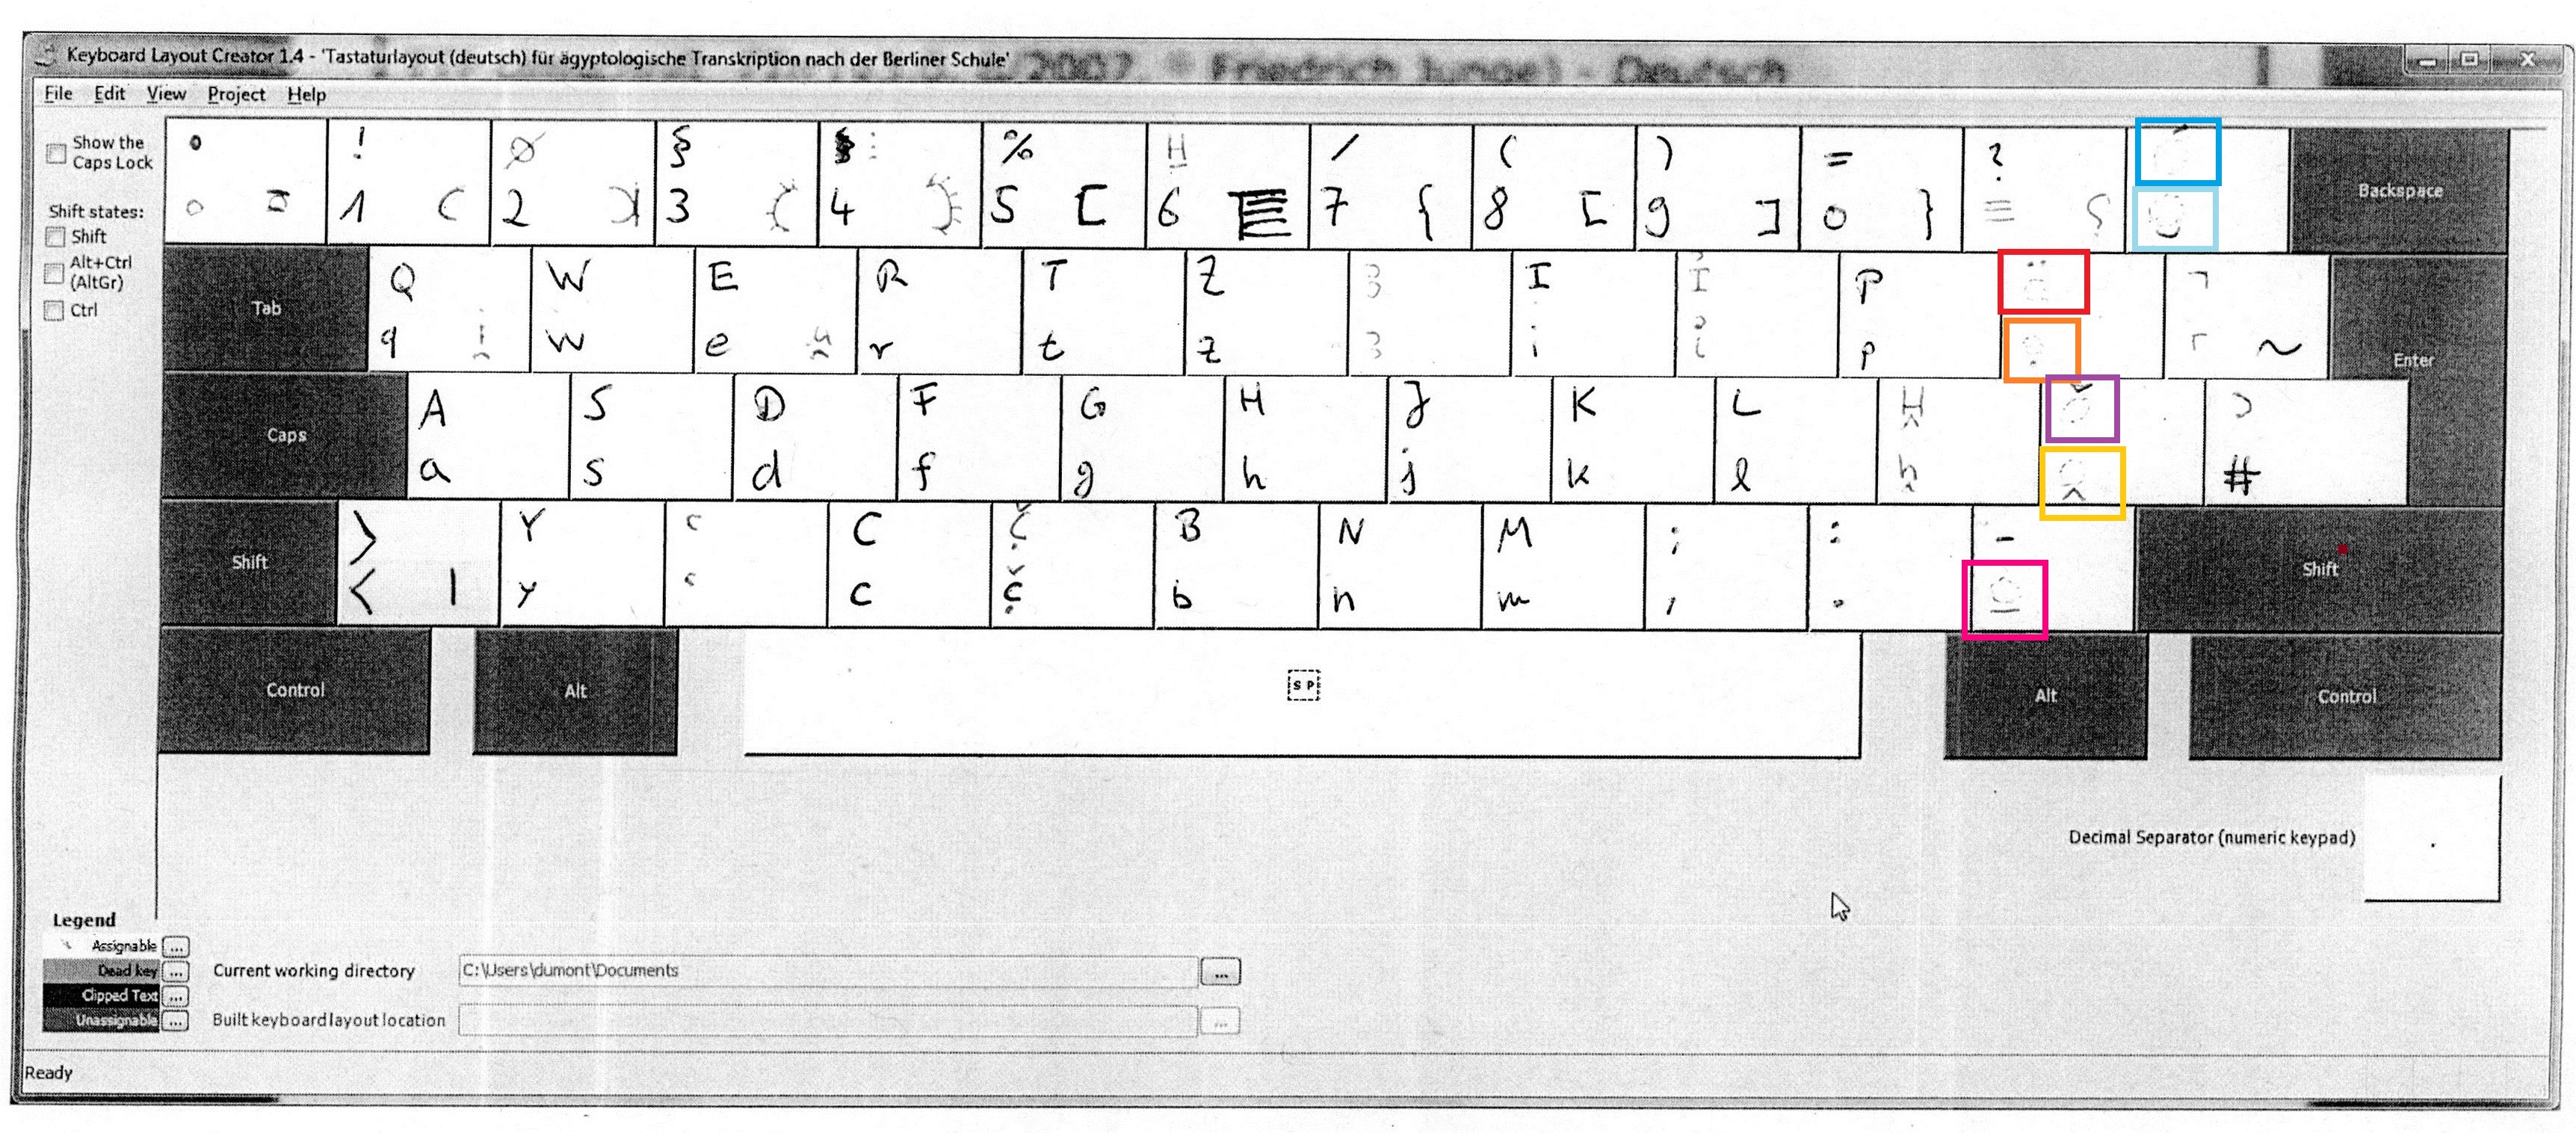 Keyboard Layout Creator 1.4 - 'Tastaturlayout (deutsch) für ägyptologische Transkription nach der Berliner Schule'
2007 * Friedrich Junge) - Deutsch
File Edit View Project Help
Show the Caps Lock
Shift states:
Shift
Alt+Ctrl (AltGr)
Ctrl
° ! § % H / ( ) = ?
1 ( 2 3 { 4 } 5 [ 6 7 { 8 [ 9 ] 0 }
Backspace
Tab
Q W E R T Z I P
q w e r t z i p ~
Enter
Caps
A S D F G H J K L
a s d f g h j k l #
Shift
> Y C B N M ; : -
< | y c b n m , .
Shift
Control
Alt
SP
Alt
Control
Decimal Separator (numeric keypad)
.
Legend
Assignable ...
Dead key ...
Clipped Text ...
Unassignable ...
Current working directory C:\Users\dumont\Documents ...
Built keyboard layout location ...
Ready